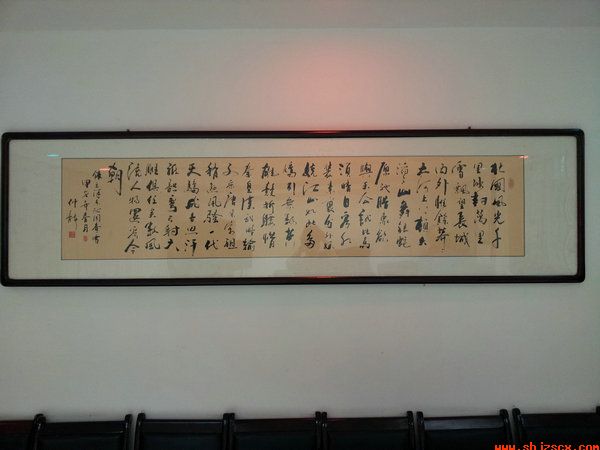 北國風光千
里冰封萬里
雪飄望長城
內外惟餘莽々
大河上下頓失
滔々山舞銀蛇
原馳蠟象欲
與天公試比高
須晴日看紅
裝素裹分外妖
嬈江山如此多
嬌引無數英
雄競折腰惜
秦皇漢武略輸
文采唐宗宋祖
稍遜風騷一代
天驕成吉思汗
只識彎弓射大
雕俱往矣數風
流人物還看今
朝
www.shizscx.com